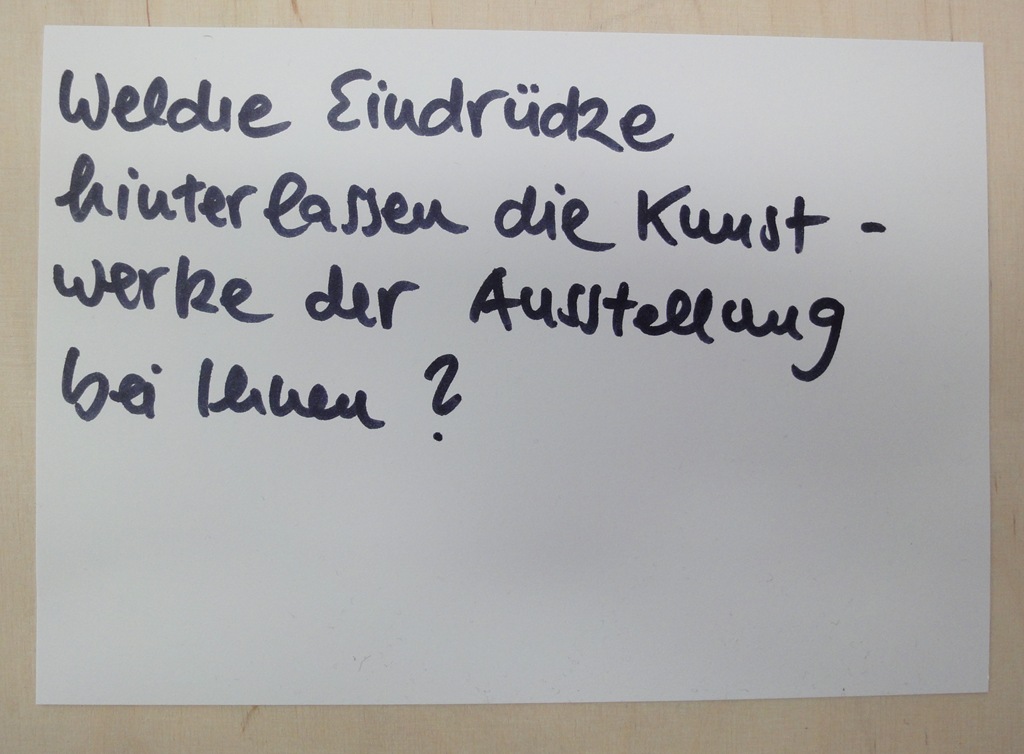 Welche Eindrücke
hinterlassen die Kunst-
werke der Ausstellung
bei Ihnen ?